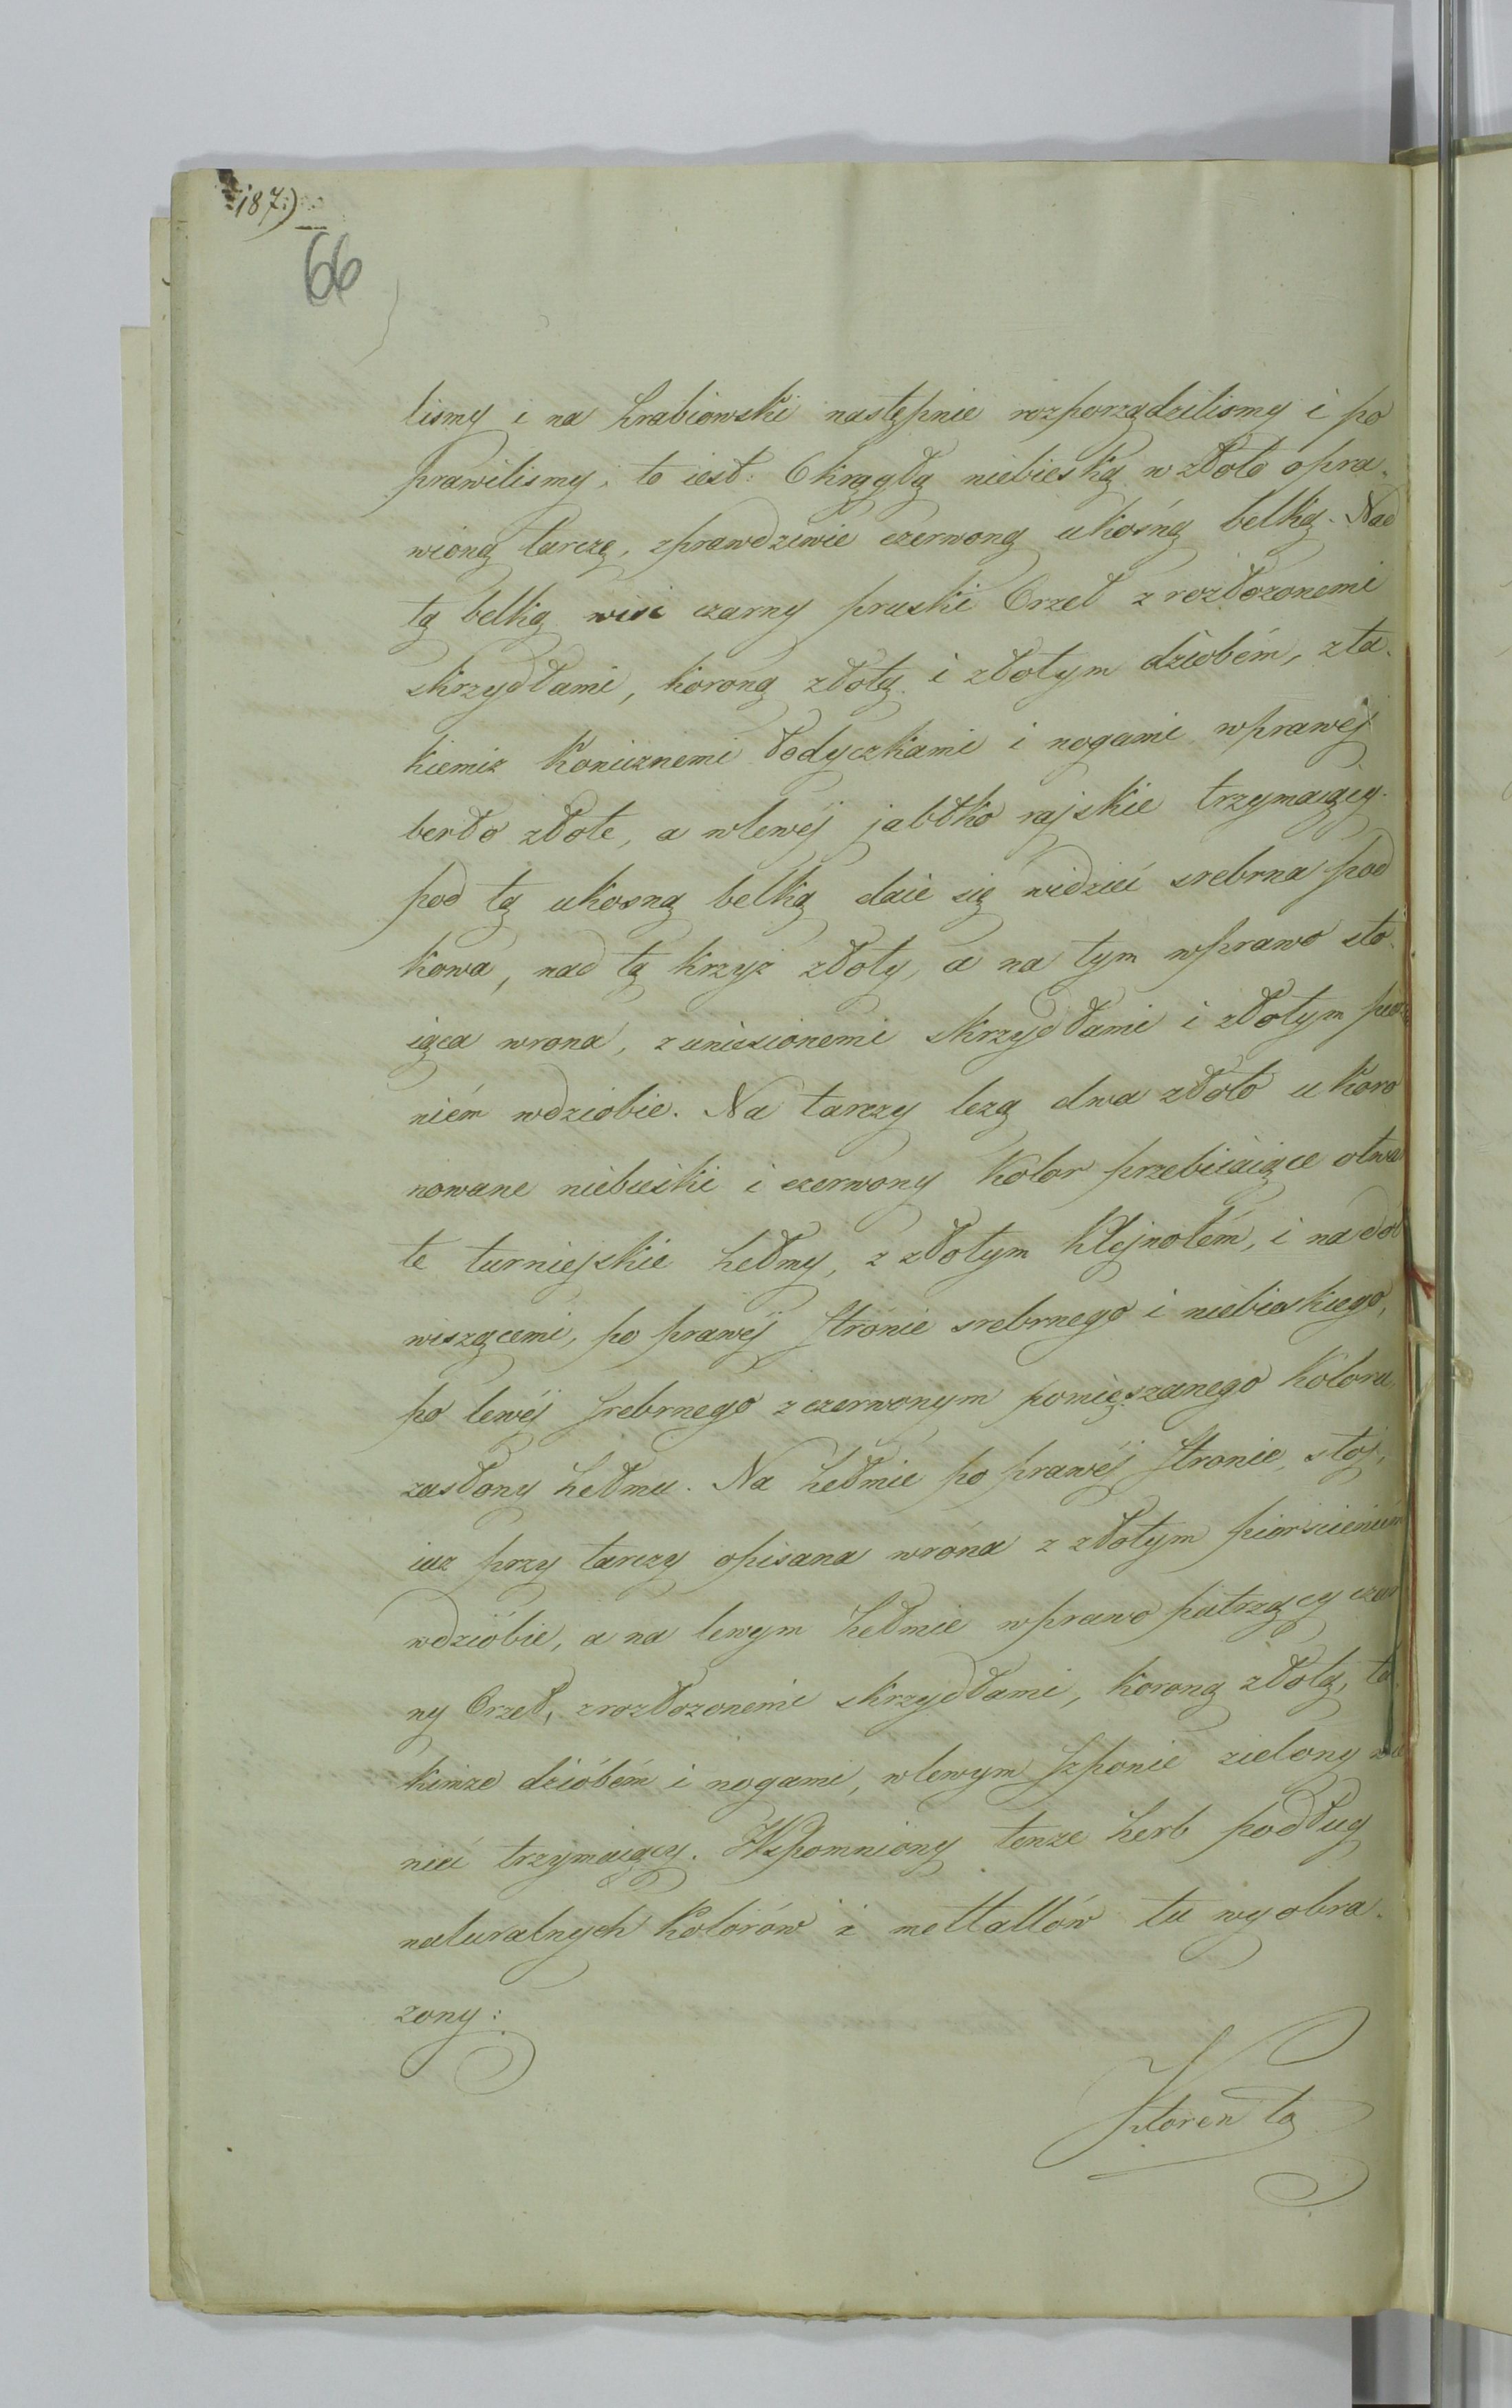 187.)
66
lismy i na hrabiowski następnie rozporządzilismy i po
prawilismy, to iest: Okrągłą niebieską w złoto opra-
wioną tarczę, zprawdziwie czerwoną ukośną belką. Nad
tą belką wisi czarny pruski Orzeł z rozłozonemi
skrzydłami, koroną złotą i złotym dziobém, z ta-
kiemiz Konicznemi łodyczkami i nogami wprawéj
berło złote, a wlewéj jabłko rajskie trzymaiący.
pod tą ukosną belką daie się widzieć srebrna pod
kowa, nad tą krzyż złoty, a na tym wprawo sto-
iąca wrona, z uniesionemi skrzydłami i złotym
niém wdziobie. Na tarczy lezą dwa złoto ukoro
nowane niebieski i czerwony Kolor przebiiaiące otwa
te turniejskie hełmy, z złotym Klejnotém, i na dół
wiszącemi, po prawéj stronie srebrnego i niebieskiego,
po lewéj srebrnego z czerwonym pomięszanego Koloru,
zasłony hełmu. Na hełmie po prawéj stronie, stoj,
iuz przy tarczy opisana wrona z złotym pierscieniém
wdziobie, a na lewym hełmie wprawo patrzący czar
ny Orzeł, z rozłozonemi skrzydłami, koroną złotą, ta
kimze dziobém i nogami, wlewym szponie zielony wie
niec trzymaiący. Wspomniony tenze herb podług
naturalnych Kolorów i mettallów tu wyobra-
zony:
Któren to